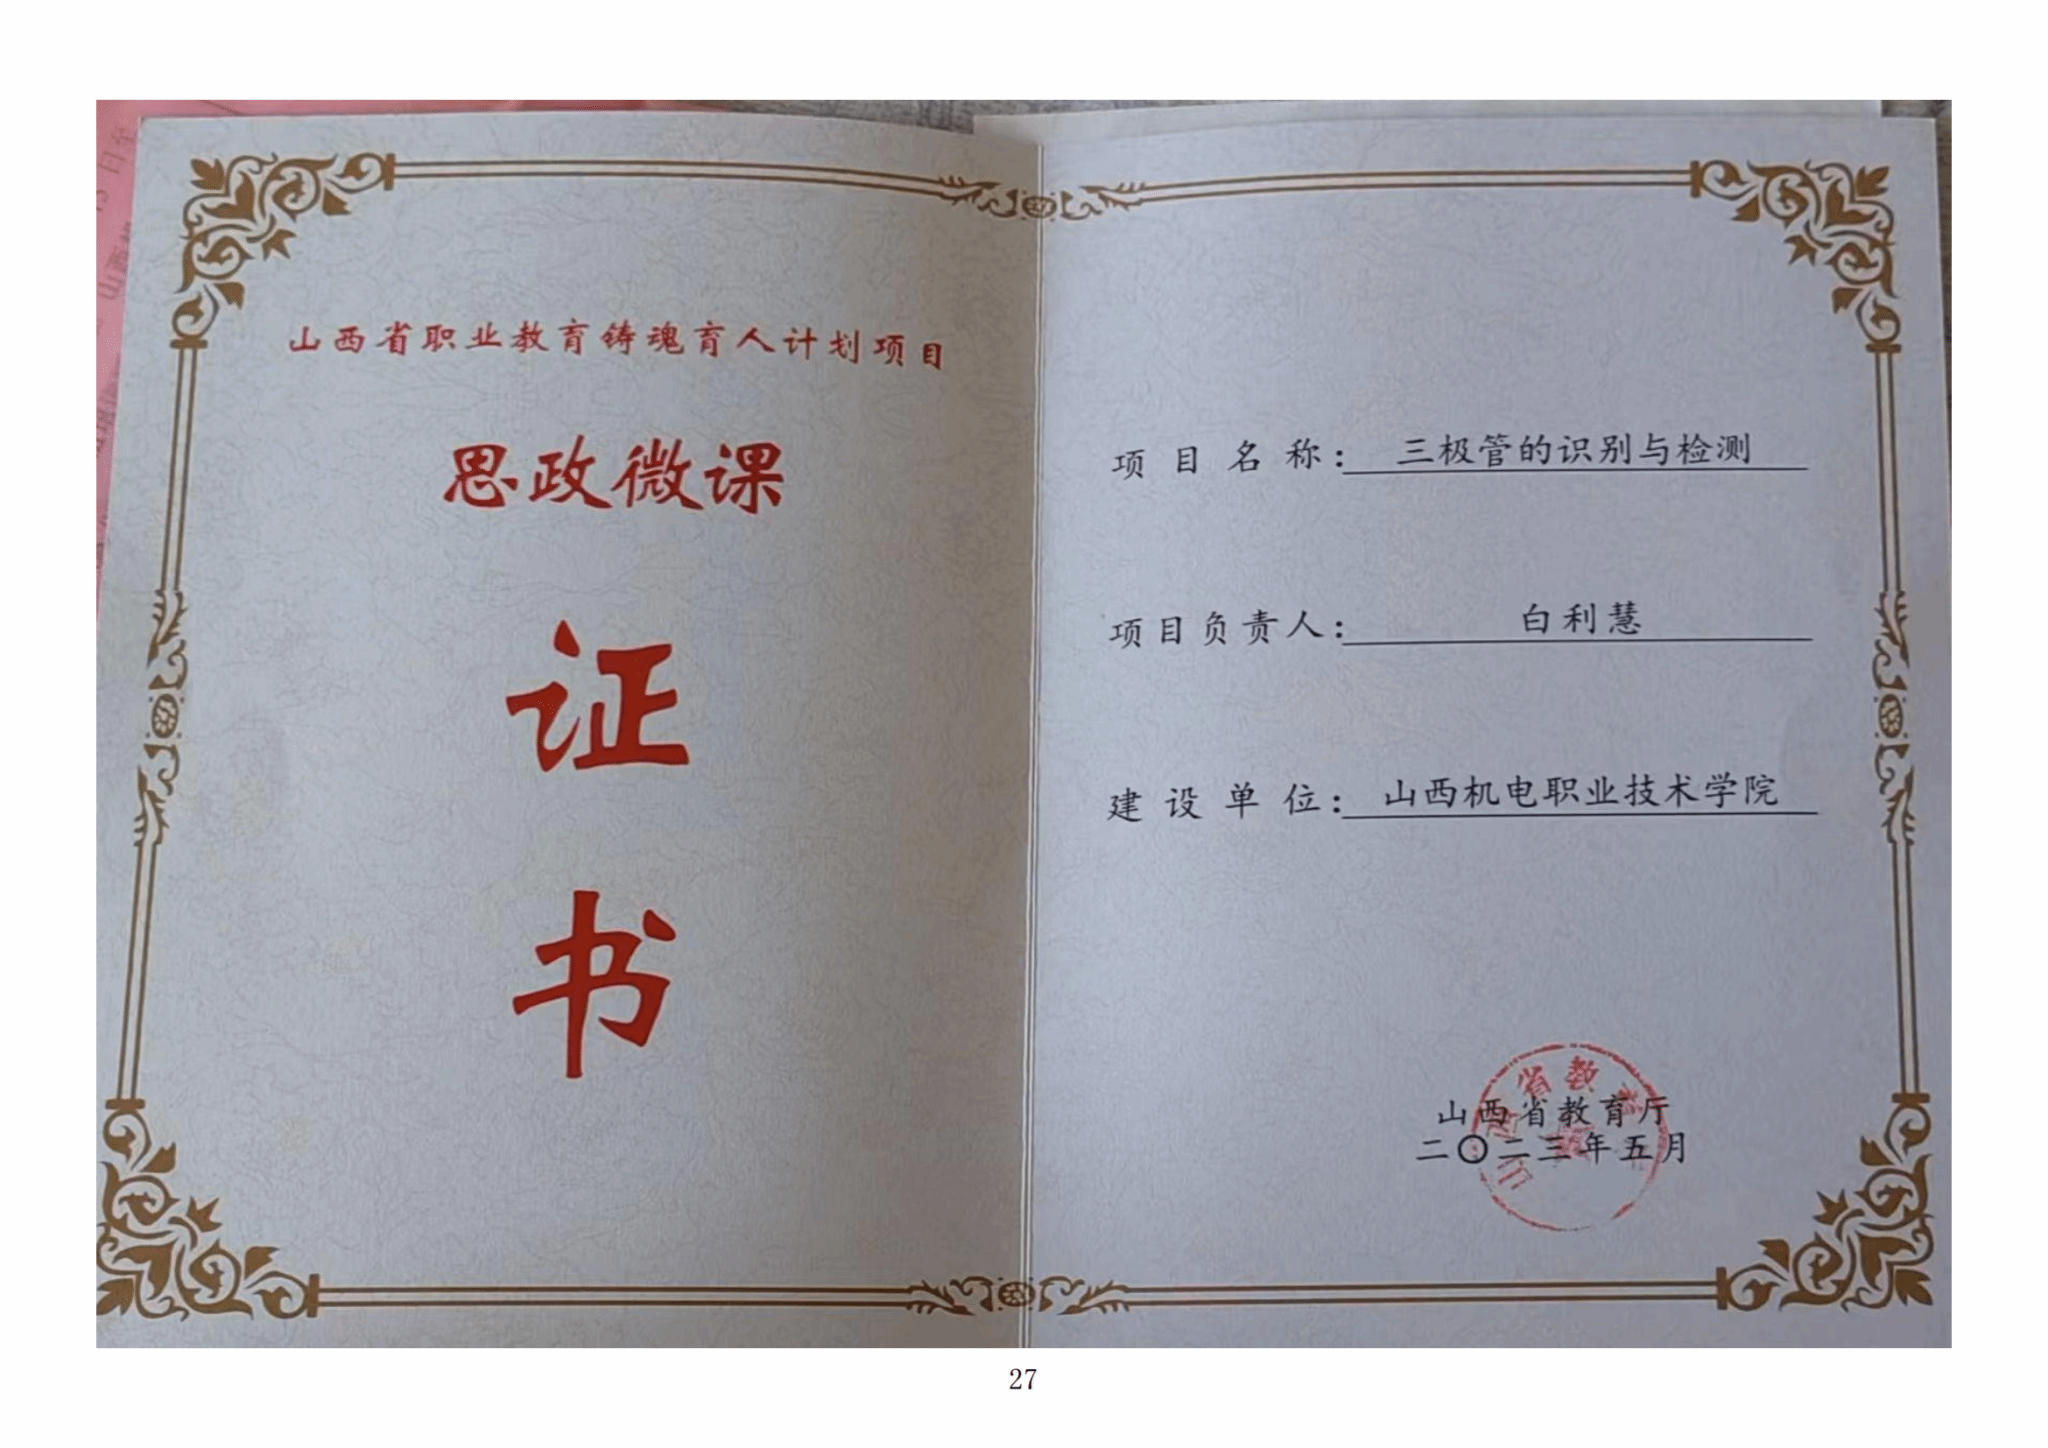 山西省职业教育铸魂育人计划项目
思政微课
证
书
项目名称：三极管的识别与检测
项目负责人：白利慧
建设单位：山西机电职业技术学院
山西省教育厅
二〇二三年五月
27